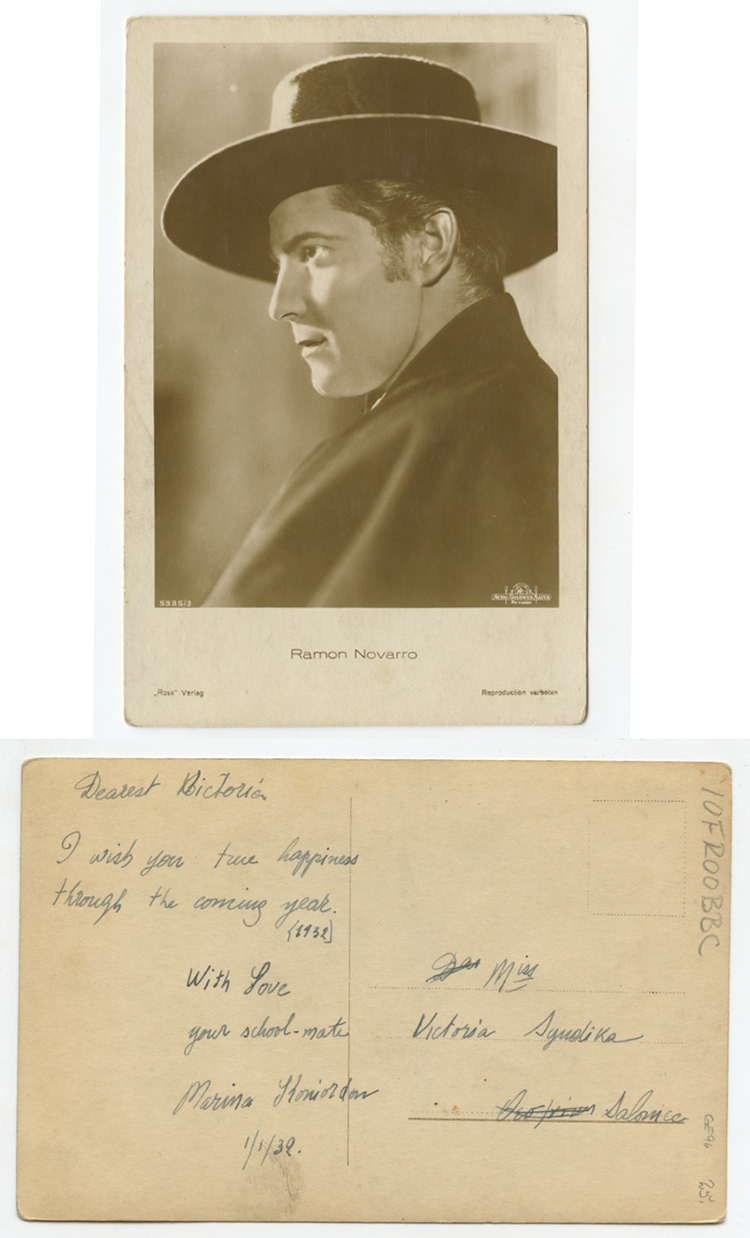 5335/3
METRO-GOLDWYN-MAYER
PICTURES
Ramon Novarro
„Ross" Verlag
Reproduction verboten
Dearest Victoria
I wish you true happiness
through the coming year.
(1932)
With Love
your school-mate
Marina
1/1/32.
Miss
Victoria Syndika
Salonica
10FR00BBC
GE96
25,